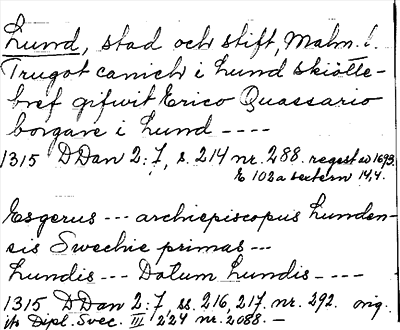 Lund, stad och stift, Malm. l.
Trugot canich i Lund skiötte-
bref gifwit Erico Quassario
borgare i Lund ----
1315 DDan 2:7, s. 214 nr. 288. regest av 1693.
E 102a 14,4.
Esgerus --- archiepiscopus Lunden-
sis Swechie primas ---
Lundis --- Datum Lundis ----
1315 DDan 2:7, ss. 216, 217, nr. 292. orig.
Dipl. Svec. III 224 nr. 2088. —